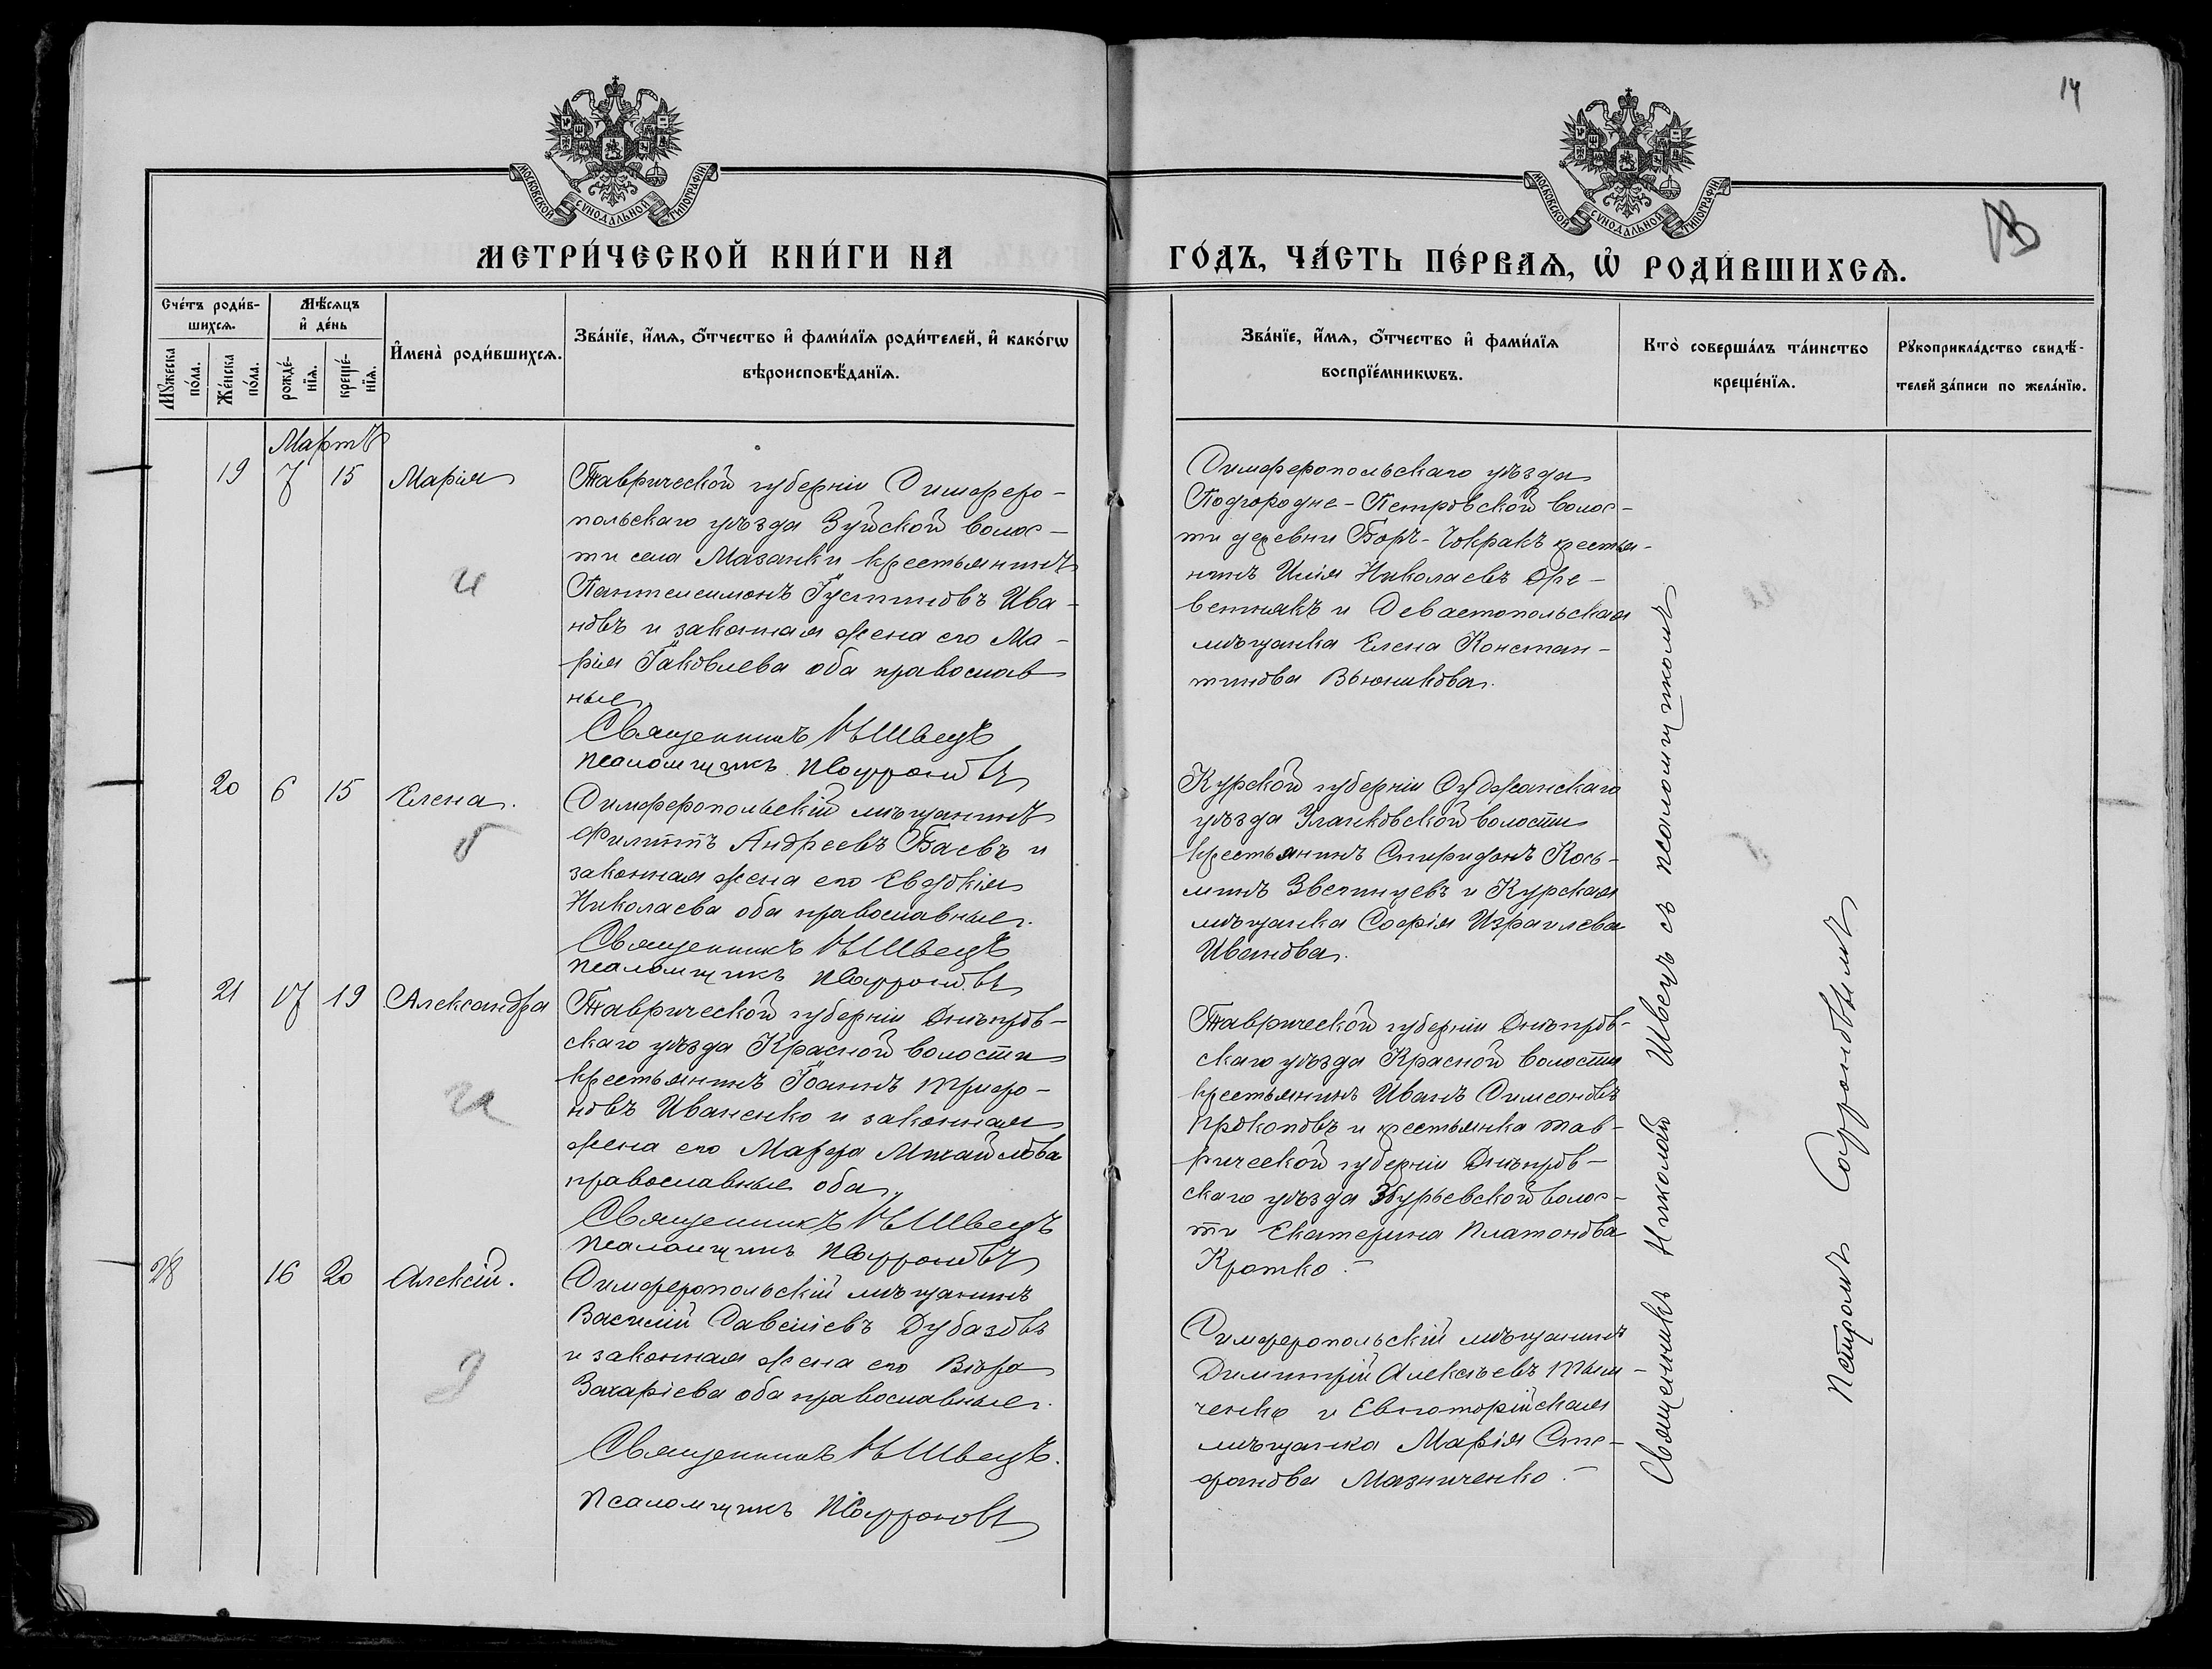 14
МОСКОВСКОЙ СѴНОДАЛЬНОЙ ТИПОГРАФІИ.
МОСКОВСКОЙ СѴНОДАЛЬНОЙ ТИПОГРАФІИ.
МЕТРИ́ЧЕСКОЙ КНИ́ГИ НА
ГО́ДЪ, ЧА́СТЬ ПЕ́РВАѦ, Ѡ҆ РОДИ́ВШИХСѦ.
Сче́тъ роди́в-
шихсѧ.
Мꙋжеска по́ла.
Же́нска по́ла.
Мѣ́сѧцъ
и҆ де́нь
рожде́-
нїѧ.
креще́-
нїѧ.
И҆мена̀ роди́вшихсѧ.
Зва́нїе, и҆́мѧ, ѻ҆́тчество и҆ фами́лїѧ роди́телей, и҆ како́гѡ
вѣроисповѣ́данїѧ.
Зва́нїе, и҆́мѧ, ѻ҆́тчество и҆ фами́лїѧ
воспрїе́мникѡвъ.
Кто̀ соверша́лъ та́инство
креще́нїѧ.
Рꙋкоприкла́дство свидѣ́-
телей за́писи по жела́нїю.
Мартъ
19 7 15 Марія
Таврической губерніи Симферо-
польскаго уѣзда Зуйской волос-
ти села Мазанки крестьянинъ
Пантелеимонъ Іустиновъ Ива-
новъ и законная жена его Ма-
рія Іаковлева оба православ
ные
Священникъ Н Швецъ
Псаломщикъ П Софроновъ
Симферопольскаго уѣзда
Подгородне-Петровской волос-
ти деревни Боръ-Чокракъ крестья-
нинъ Илія Николаевъ Дре-
ветнякъ и Севастопольская
мѣщанка Елена Констан-
тинова Вьюникова.
20 6 15 Елена.
Симферопольскій мѣщанинъ
Филиппъ Андреевъ Баевъ и
законная жена его Евдокія
Николаева оба православные.
Священникъ Н Швецъ
Псаломщикъ П Софроновъ
Курской губерніи Суджанскаго
уѣзда Уланковской волости
крестьянинъ Спиридонъ Кось-
минъ Звегинцевъ и Курская
мѣщанка Софія Израилева
Иванова.
21 17 19 Александра
Таврической губерніи Днѣпров-
скаго уѣзда Красной волости
крестьянинъ Іоаннъ Трифо-
новъ Иваненко и законная
жена его Марфа Михайлова
православные оба.
Священникъ Н Швецъ
Псаломщикъ П Софроновъ
Таврической губерніи Днѣпров-
скаго уѣзда Красной волости
крестьянинъ Иванъ Симеоновъ
Прокоповъ и крестьянка Тав-
рической губерніи Днѣпров-
скаго уѣзда Збурьевской волос-
ти Екатерина Платонова
Кротко.
28 16 20 Алексій.
Симферопольскій мѣщанинъ
Василій Савеліевъ Дубазовъ
и законная жена его Вѣра
Захаріева оба православные.
Священникъ Н Швецъ.
Псаломщикъ П Софроновъ
Симферопольскій мѣщанинъ
Димитрій Алексѣевъ
и Евпаторійская
мѣщанка Марія Сте-
фанова Мазниченко.
Священникъ Николай Швецъ съ псаломщикомъ
Петромъ Софроновымъ